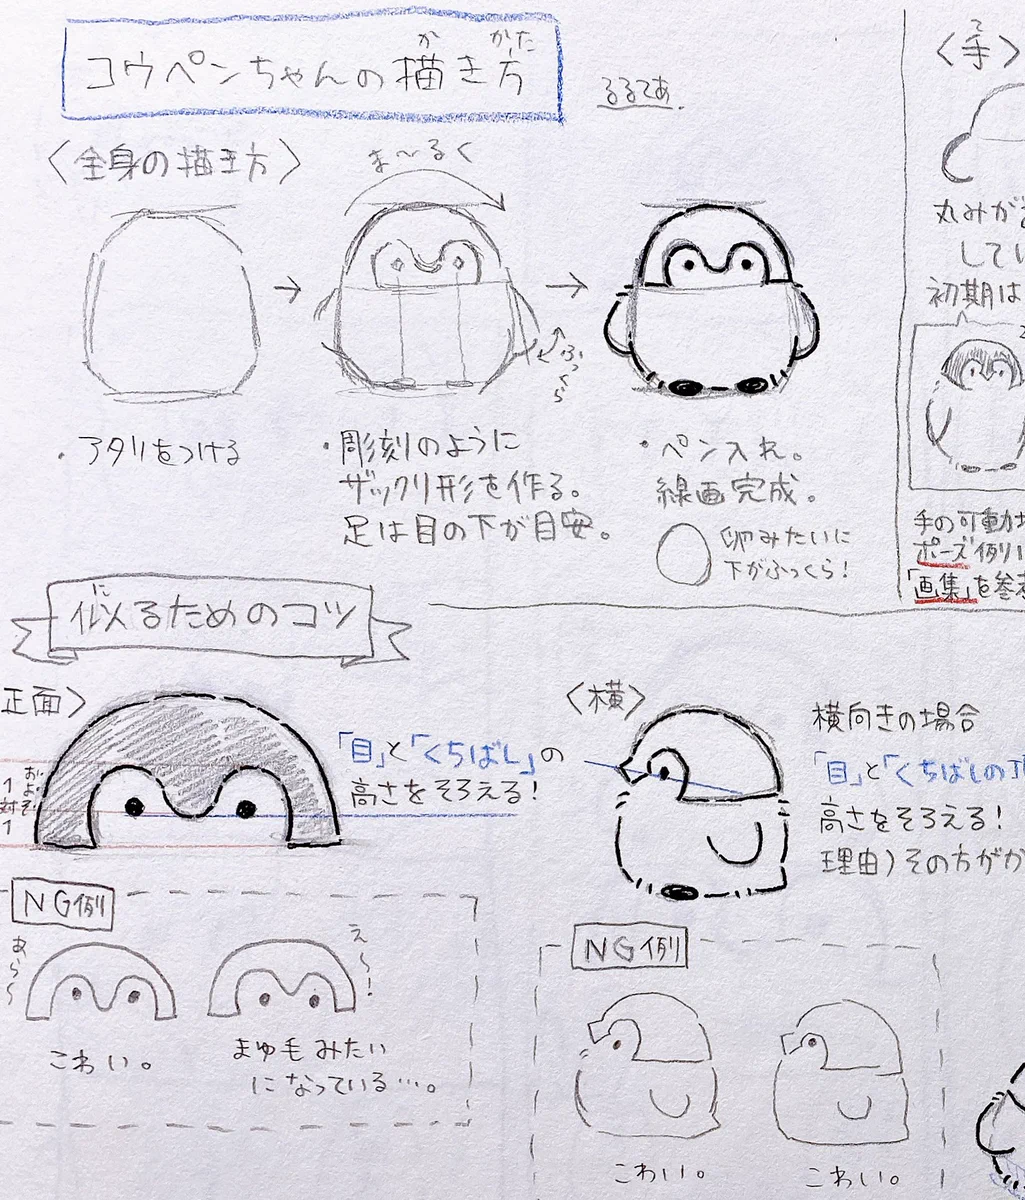 コウペンちゃんの描き方
か かた
るるてあ
〈全身の描き方〉
ま〜るく
ふっくら
・アタリをつける
・彫刻のように
ザックリ形を作る。
足は目の下が目安。
・ペン入れ。
線画完成。
卵みたいに
下がふっくら！
〈手〉
て
丸みが
してい
初期は
手の可動
ポーズ例
「画集」を参
似るためのコツ
に
正面〉
およそ
1対1
「目」と「くちばし」の
高さをそろえる！
NG例
あら〜
こわい。
え〜！
まゆ毛みたい
になっている…。
〈横〉
横向きの場合
「目」と「くちばしの下
高さをそろえる！
理由）その方がか
NG例
こわい。
こわい。